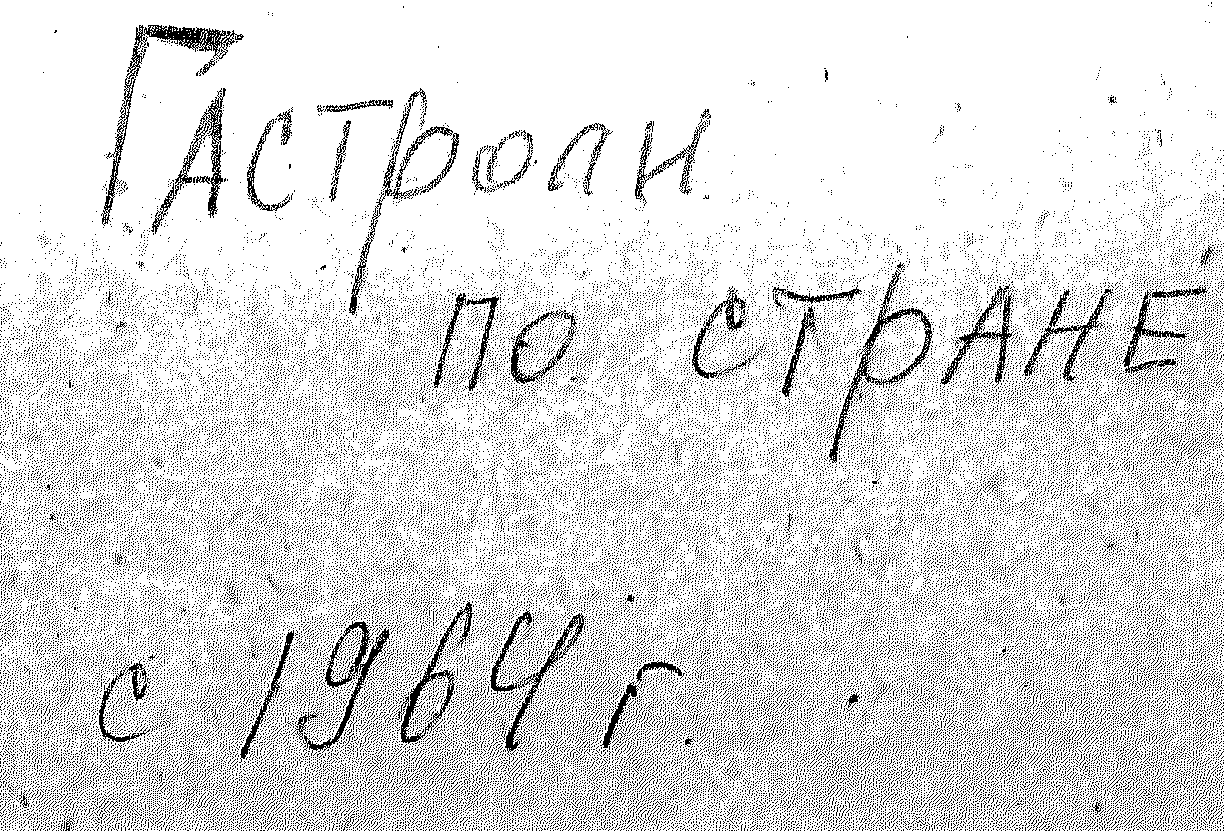 Гастроли
по стране
с 1964 г.